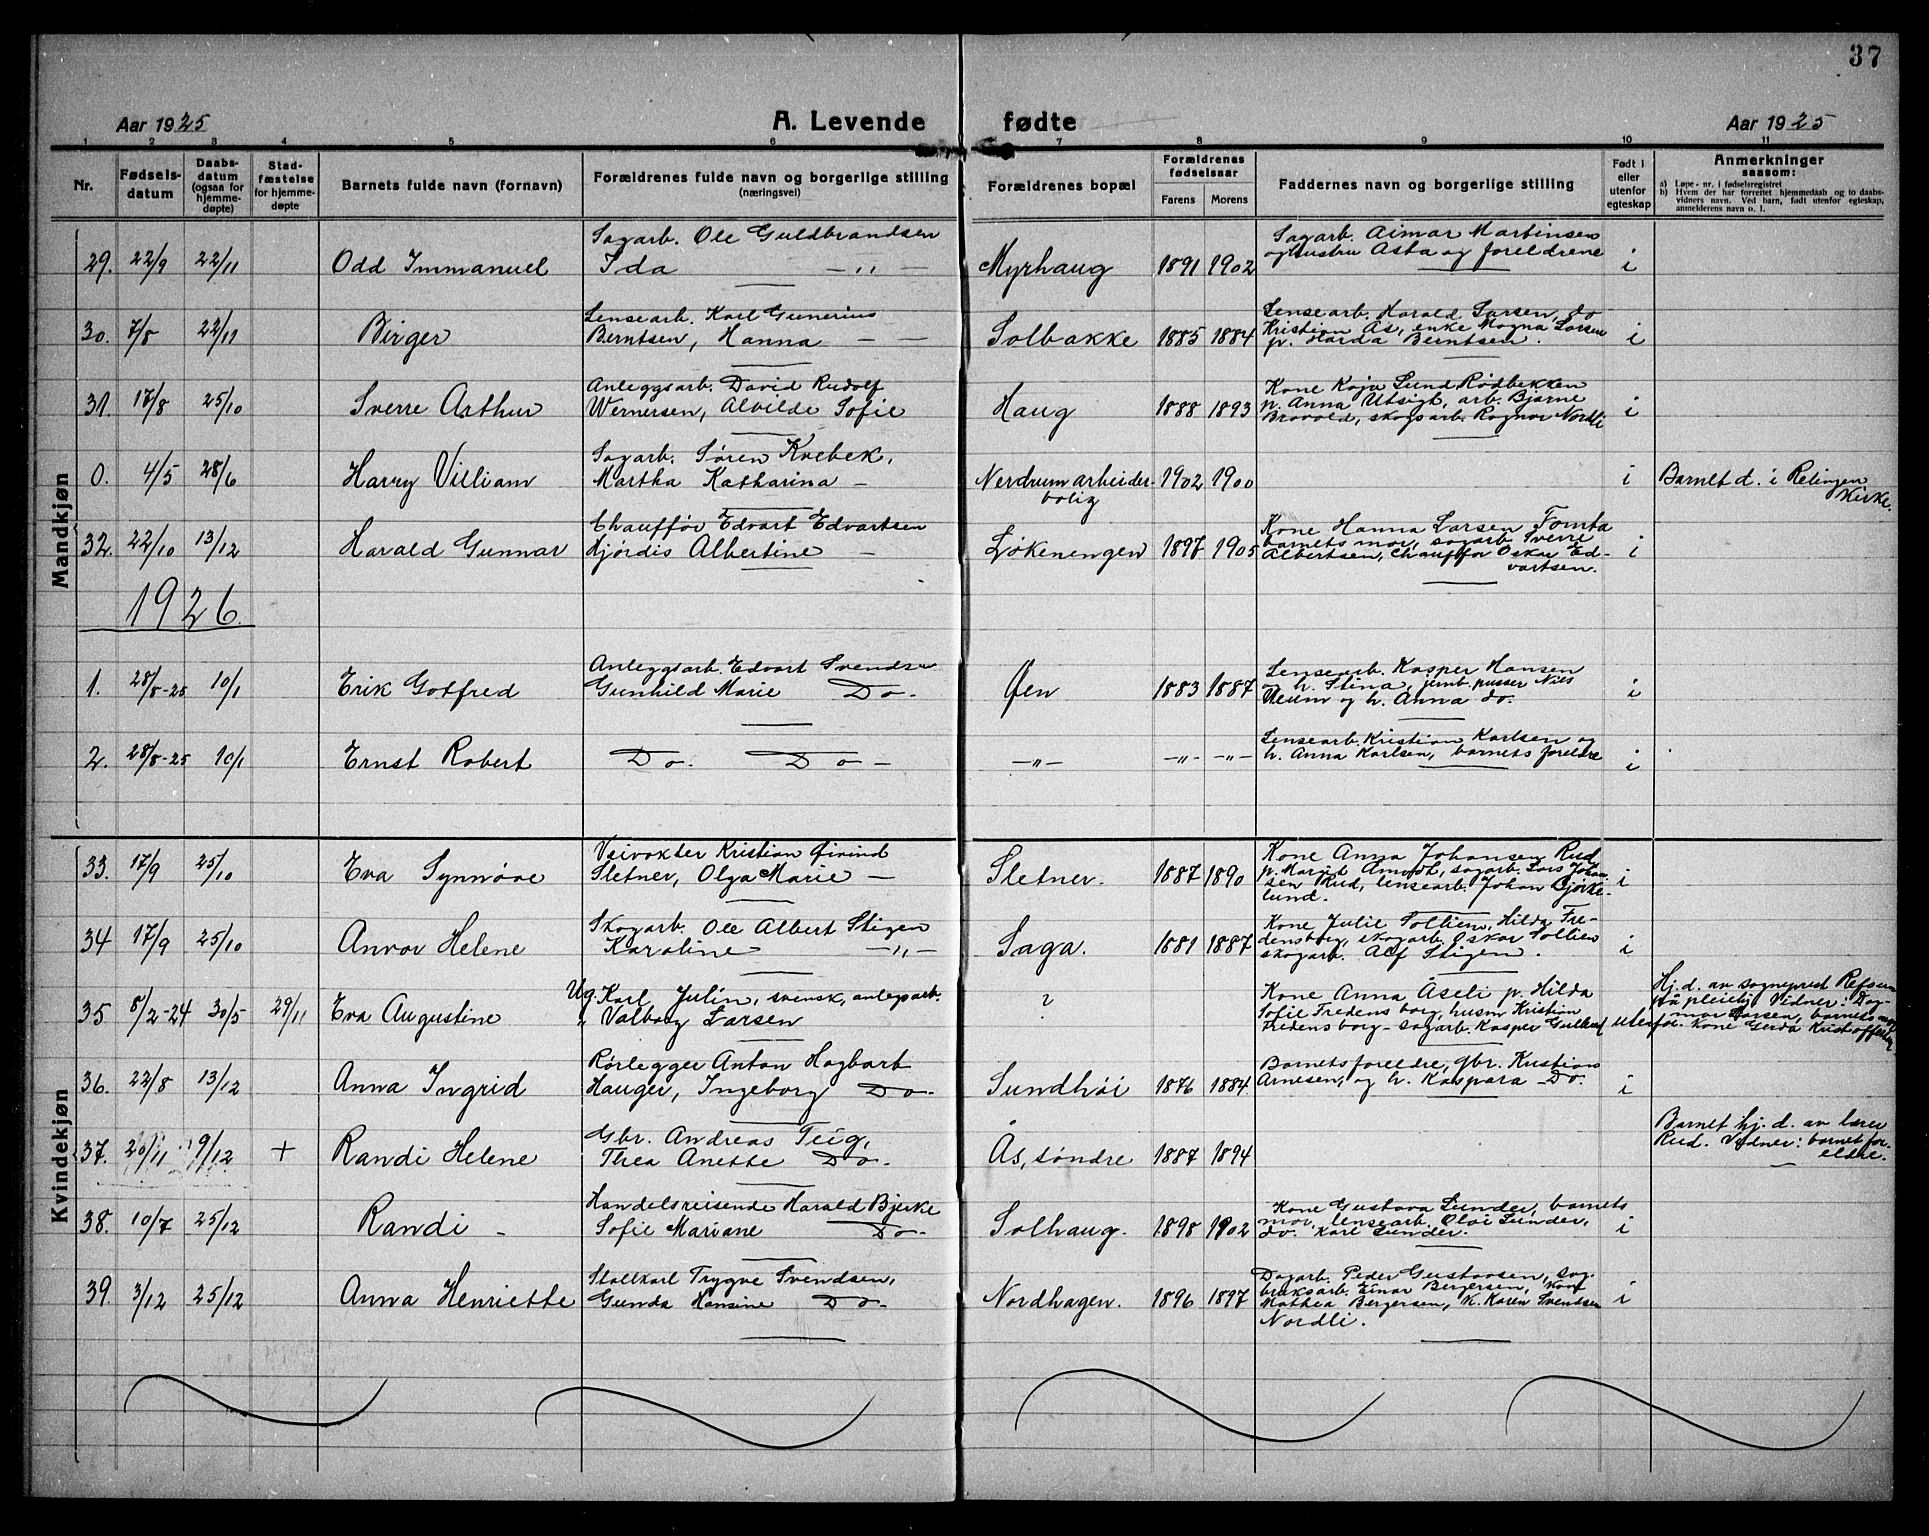 37
Aar 1925
A. Levende fødte
Aar 1925
1 2 3 4 5 6 7 8 9 10 11
Nr.
Fødsels-
datum
Daabs-
datum
(ogsaa for
hjemme-
døpte)
Stad-
fæstelse
for hjemme-
døpte
Barnets fulde navn (fornavn)
Forældrenes fulde navn og borgerlige stilling
(næringsvei)
Forældrenes bopæl
Forældrenes
fødselsaar
Farens Morens
Faddernes navn og borgerlige stilling
Født i
eller
utenfor
egteskap
Anmerkninger
saasom:
a) Løpe-nr. i fødselsregistret
b) Hvem der har forrettet hjemmedaab og to daabs-
vidners navn. Ved barn, født utenfor egteskap,
anmelderens navn o. l.
Mandkjøn
29. 22/9 22/11 Odd Immanuel
Sagarb. Ole Guldbrandsen
Ida — " —
Myrhaug 1891 1902
Sagarb. Aimar Martinsen
og hustru Asta og foreldrene
i
30. 7/8 22/11 Birger
Lensearb. Karl Gunerius
Berntsen, Hanna — —
Solbakke 1885 1884
Lensearb. Harald Larsen, do
Kristian Ås, enke Magna Larsen
p. Harda Berntsen.
i
31. 17/8 25/10 Sverre Arthur
Anleggsarb. David Rudolf
Wernersen, Alvilde Sofie
Haug 1888 1893
Kone Kaja Lund Rødbekken
p. Anna Utsigt, arb. Bjarne
Bravold, skogsarb. Ragnar Nordli
i
0. 4/5 28/6 Harry Villiam
Sagarb. Søren Kvebek,
Martha Katharina —
Nerdrum arbeider-
bolig
1902 1900
i
Barnet d. i Relingen
Kirke.
32. 22/10 13/12 Harald Gunnar
Chauffør Edvart Edvartsen
Hjørdis Albertine —
Løkenengen 1897 1905
Kone Hanna Larsen Tomta
barnets mor, sagarb. Sverre
Albertsen, chauffør Oskar Ed-
vartsen.
i
1926.
1. 28/8-25 10/1 Erik Gotfred
Anleggsarb. Edvart Svendsen
Gunhild Marie Do-
Øen 1883 1887
Lensearb. Kasper Hansen
og h. Stina, jernb. pusser Nils
Ueum og h. Anna do.
i
2. 28/8-25 10/1 Ernst Robert
Do- Do-
—"— —"— —"—
Lensearb. Kristian Karlsen og
h. Anna Karlsen, barnets foreldre
i
Kvindekjøn
33. 17/9 25/10 Eva Synnøve
Veivokter Kristian Øivind
Sletner, Olga Marie —
Sletner. 1887 1890
Kone Anna Johansen Rud
p. Marit Amodt, sagarb. Lars Johan-
sen Rud, lensearb. Johan Bjørke-
lund.
i
34 17/9 25/10 Anvor Helene
Skogarb. Ole Albert Stigen
Karoline — " —
Saga. 1881 1887
Kone Julie Tollien, Hilda Fre-
densborg, skogarb. Oskar Tollien
skogarb. Alf Stigen.
i
35 8/2-24 30/5 29/11 Eva Augustine
Ug. Karl Julin, svensk, anlegsarb.
" Valborg Larsen
?
Kone Anna Åseli p. Hilda
Sofie Fredensborg, husm Kristian
Fredensborg - sagarb. Kasper
utenfor
Hj.d. av sogneprest Refsum
på pleiehj. Vidner: Dag-
mor Larsen, barnets mor
Kone Gerda Kristoffersen
36. 22/8 13/12 Anna Ingrid
Rørlegger Anton Hagbart
Hauger, Ingeborg Do-
Sundhöi 1876 1884.
Barnets foreldre, gbr. Kristian
Arnesen, og h. Kaspara Do.
i
37. 20/11 9/12 + Randi Helene
Gbr. Andreas Teig,
Thea Anette Do-
Ås, søndre 1887 1894
Barnet hj. d. av lærer
Rud. Vidner: barnet for-
eldre.
38. 10/7 25/12 Randi -
Handelsreisende Harald Bjerke
Sofie Mariane Do-
Solhaug. 1898 1902
Kone Gustava Lunder, barnets
mor, lensearb. Olai Lunder,
do. Karl Lunder.
i
39. 3/12 25/12 Anna Henriette
Stallkarl Trygve Svendsen,
Gunda Hansine Do-
Nordhagen. 1896 1897
Dagarb. Peder Gustavsen, sag-
bruksarb. Einar Bergersen, Kone
Mathea Bergersen, K. Karen Svendsen
Nordli.
i